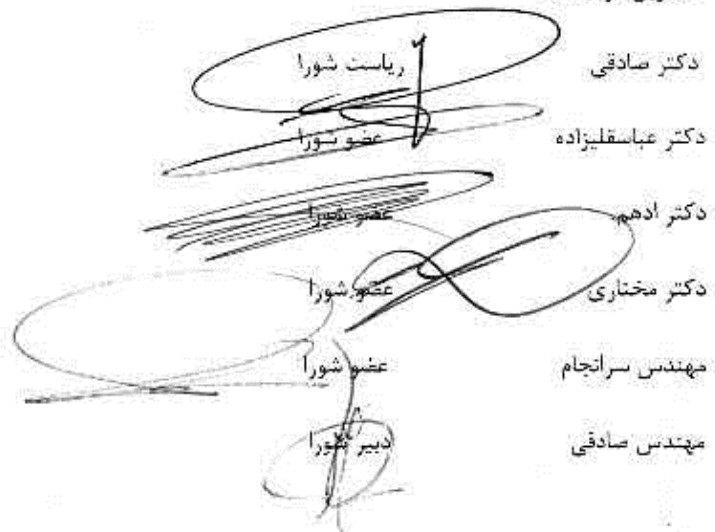 دکتر صادقی ریاست شورا
دکتر عباسقلیزاده عضو شورا
دکتر ادهم عضو شورا
دکتر مختاری عضو شورا
مهندس سرانجام عضو شورا
مهندس صادقی دبیر شورا